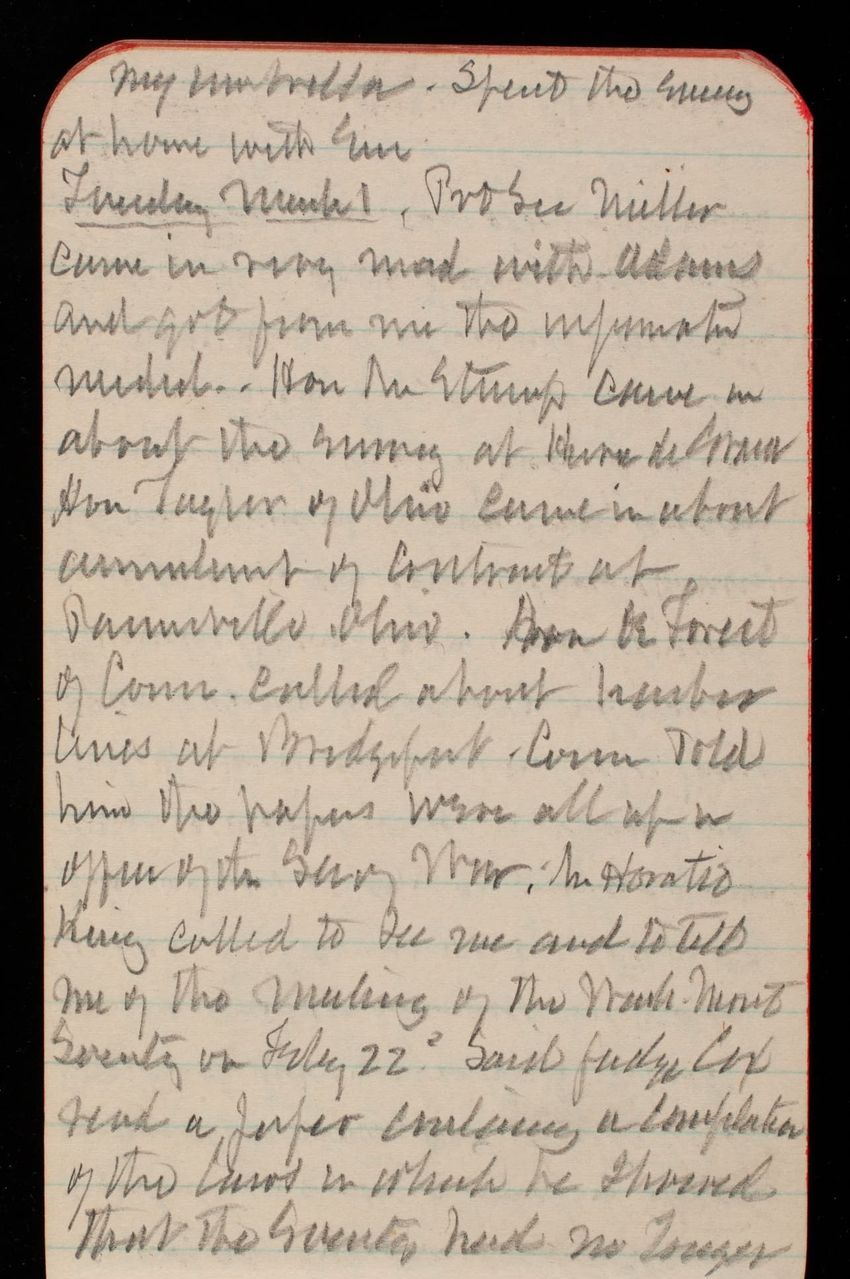 my umbrella. Spent the evening
at home with Em
Tuesday March 1, Prvt Sec Miller
came in very mad with Adams
and got from me the information
needed.. Hon Mr Stump came in
about the survey at Havre de Grace
Hon Taylor of Ohio came in about
annulment of Contract at
Painesville Ohio. Hon De Forest
of Conn. called about harbor
lines at Bridgeport. Conn Told
him the papers were all up in
office of the Sec of War. Mr Horatio
King called to see me and to tell
me of the meeting of the Wash. Mont
Society on Feby 22d Said Judge Cox
read a paper containing a compilation
of the laws in which he showed
that the Society had no longer